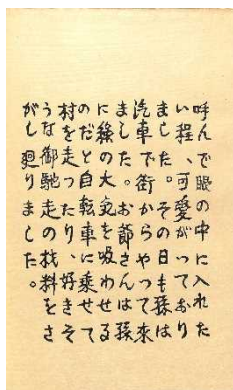 呼んで眼の中に入れた
い程、可愛がっており
ました。その日も孫は
汽車で街からやって来
ました。お爺さんは孫
に緑の大気を吸わせる
のだと自転車に乗せて
村を走ったり、好きそ
うな御馳走の材料をさ
がし廻りました。